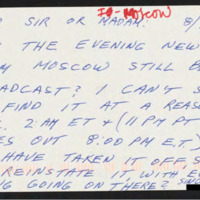 IG-MOSCOW
SIR OR MADAM: 8/
THE EVENING NEW
M MOSCOW STILL B
ADCAST? I CAN'T S
FIND IT AT A REASO
2:AM ET + (11 PM PT
ES OUT 8:00 PM E.T.)
HAVE TAKEN IT OFF, S
REINSTATE IT, WITH EV
NG GOING ON THERE?